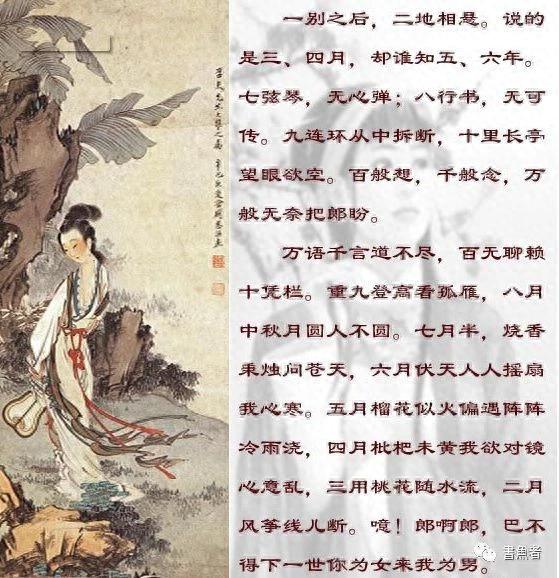 一别之后，二地相悬。说的
是三、四月，却谁知五、六年。
七弦琴，无心弹；八行书，无可
传。九连环从中拆断，十里长亭
望眼欲空。百般想，千般念，万
般无奈把郎盼。
万语千言道不尽，百无聊赖
十凭栏。重九登高看孤雁，八月
中秋月圆人不圆。七月半，烧香
秉烛问苍天，六月伏天人人摇扇
我心寒。五月榴花似火偏遇阵阵
冷雨浇，四月枇杷未黄我欲对镜
心意乱，三用桃花随水流，二月
风筝线儿断。噫！郎啊郎，巴不
得下一世你为女来我为男。
書魚者